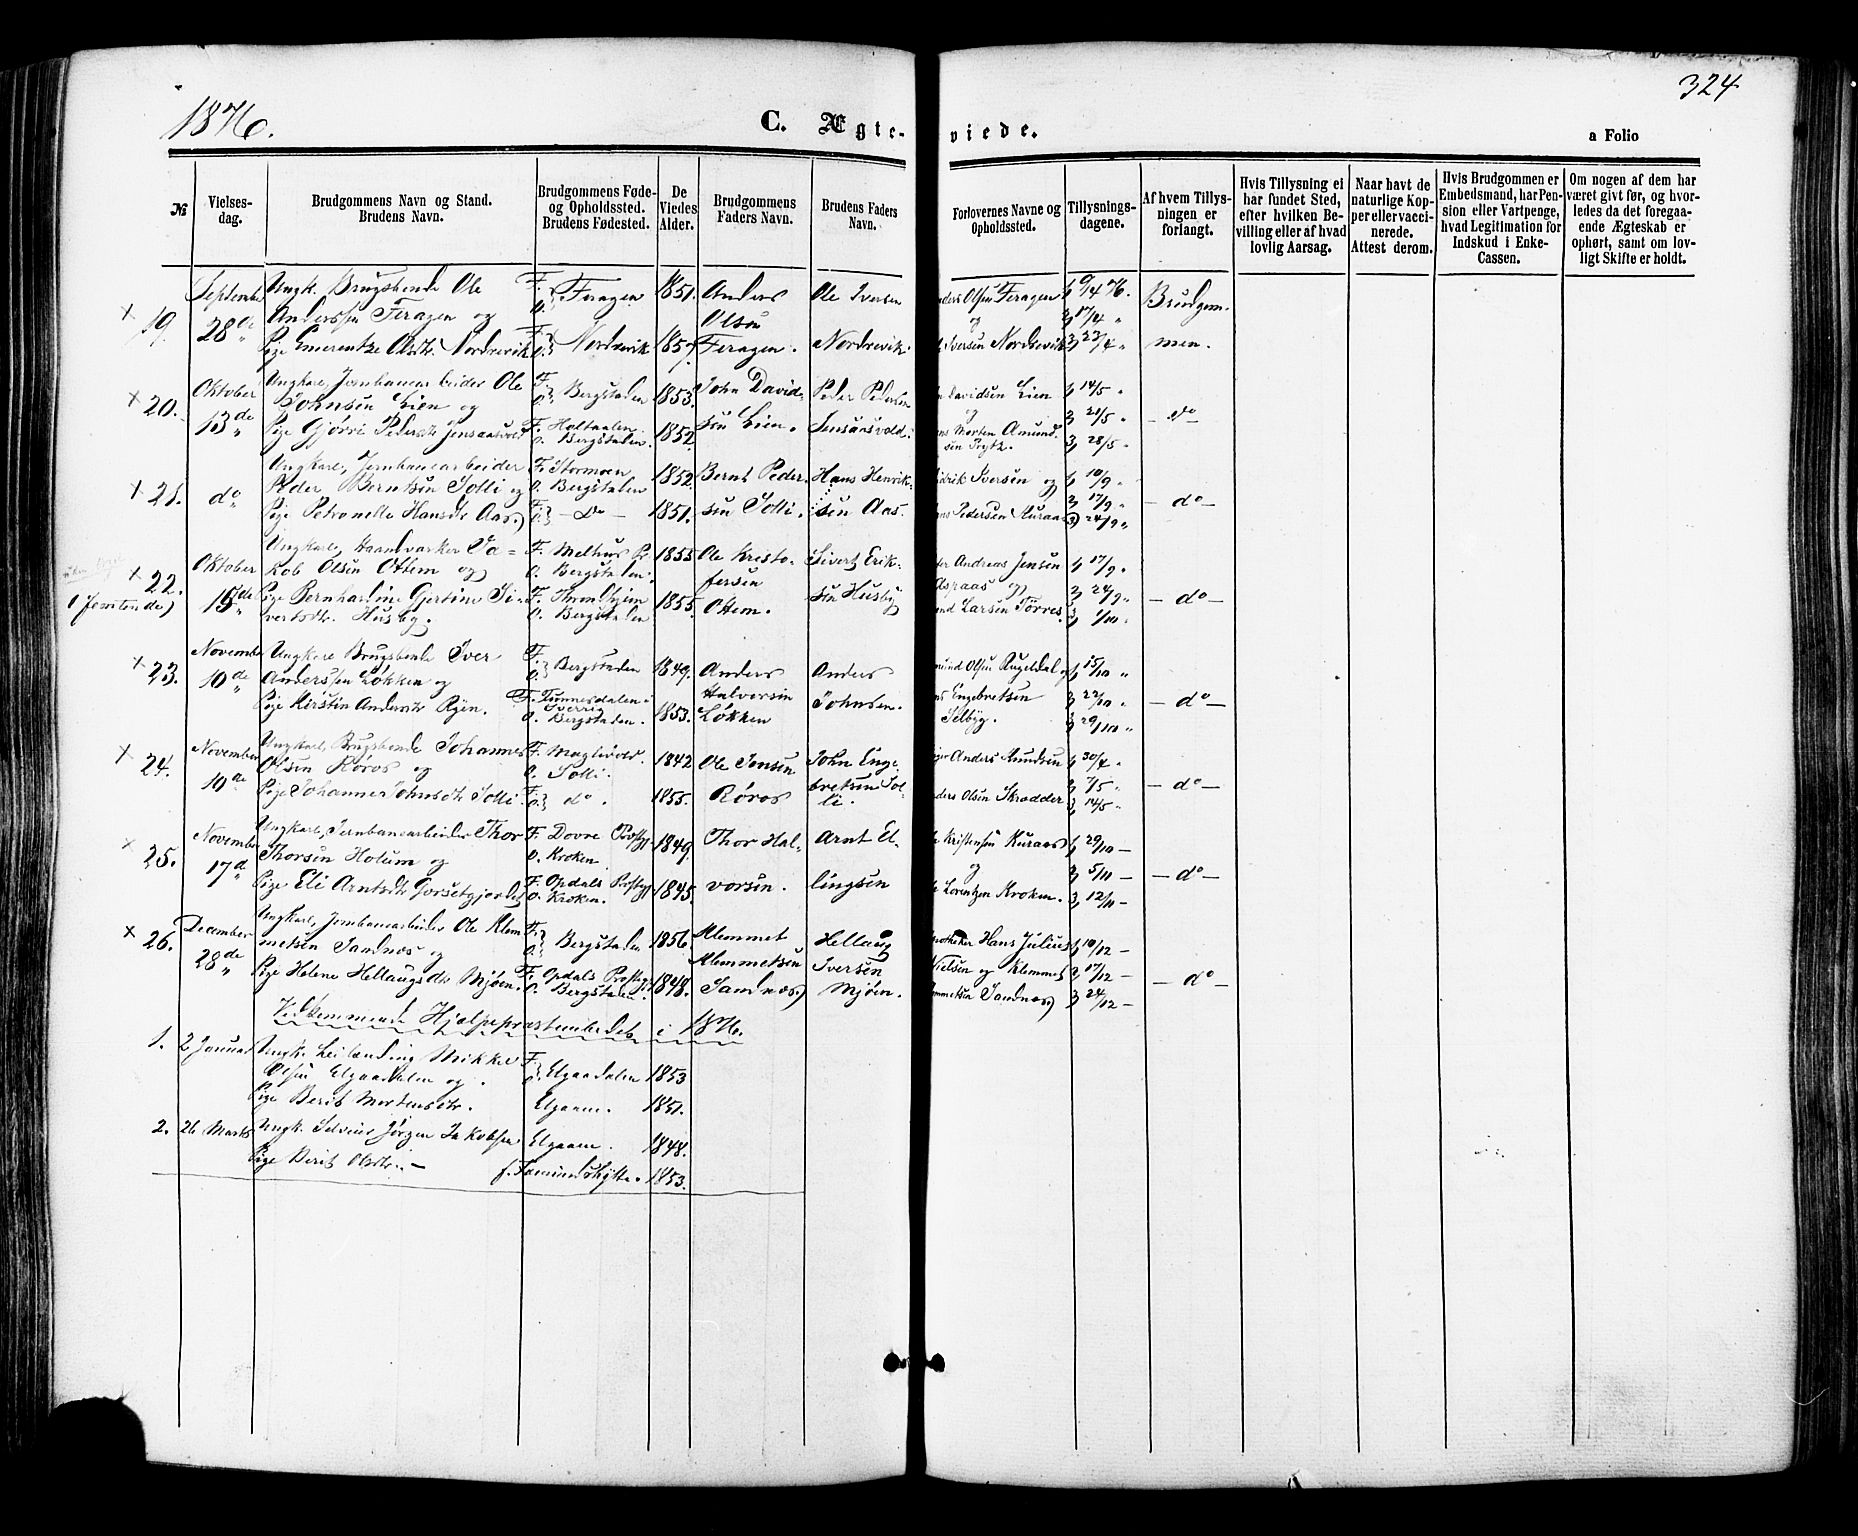 1876.
C. Ægte-
viede.
324
a Folio
№
Vielses-
dag.
Brudgommens Navn og Stand.
Brudens Navn.
Brudgommens Føde-
og Opholdssted.
Brudens Fødested.
De
Viedes
Alder.
Brudgommens
Faders Navn.
Brudens Faders
Navn.
Forlovernes Navne og
Opholdssted.
Tillysnings-
dagene.
Af hvem Tillys-
ningen er
forlangt.
Hvis Tillysning ei
har fundet Sted,
efter hvilken Be-
villing eller af hvad
lovlig Aarsag.
Naar havt de
naturlige Kop-
per eller vacci-
nerede.
Attest derom.
Hvis Brudgommen er
Embedsmand, har Pen-
sion eller Vartpenge,
hvad Legitimation for
Indskud i Enke-
Cassen.
Om nogen af dem har
været givt før, og hvor-
ledes da det foregaa-
ende Ægteskab er
ophørt, samt om lov-
ligt Skifte er holdt.
× 19.
September
28de
Ungk. Brugsbende Ole
Anderssen Feragen og
Pige Emerentze Olsdtr. Nordervik
F.
O. Feragen
F.
O. Nordervik
1851.
1857.
Anders
Olsen
Feragen.
Ole Iversen
Nordrevik.
Anders Olsen Feragen
og
Iversen Nordrevik
1, 9/4 76.
2, 17/4 "
3, 23/4 "
Brudgom-
men.
× 20.
Oktober
13de
Ungkarl, Jernbanearbeider Ole
Johnsen Lien og
Pige Gjørri Pedersdtr Jensaasvold
F.
O. Bergstaden
F. Holtaalen
O. Bergstaden.
1853.
1852.
John David-
sen Lien.
Peder Pedersen
Jensaasvold.
Davidsen Lien
og
Morten Amund-
sen Prytz.
1, 14/5 "
2, 21/5 "
3, 28/5 "
do
× 21.
do
Ungkarl, Jernbanearbeider
Peder Berntsen Solli og
Pige Petronelle Hansdtr Aas.
F. Stormoen
O. Bergstaden
F.
O. — Do —
1852.
1851.
Bernt Peder-
sen Solli.
Hans Henrik-
sen Aas.
Iversen og
Pedersen Kuraas
1, 10/9 "
2, 17/9 "
3, 24/9 "
— do —
× 22.
(Jemtende)
Oktober
15de
Ungkarl, Haandværker Ja-
kob Olsen Ottem og
Pige Bernhardine Gjertine Si-
vertsdtr. Husby.
F. Melhus Pr
O. Bergstaden.
F. Throndhjem
O. Bergstaden
1855
1855.
Ole Kristo-
fersen
Ottem.
Sivert Erik-
sen Husby
Andreas Jensen
og
Larsen Tørres.
1, 17/9 "
2, 24/9 "
3, 1/10 "
— do —
× 23.
November
10de
Ungkarl Brugsbende Iver
Anderssen Løkken og
Pige Kirstin Andersdtr Ryen.
F.
O. Bergstaden
F. Tennesdalen i
Sverrig
O. Bergstaden.
1849.
1853.
Anders
Halvorsen
Løkken
Anders
Johnsen.
Olsen Rugeldal og
Engebretsen
Selbyg.
1, 15/10 "
2, 22/10 "
3, 29/10 "
— do —
× 24.
November
10de
Ungkarl, Brugsbende Johannes
Olsen Røros og
Pige Johanne Johnsdtr Solli.
F. Magtivold.
O. Solli.
F.
O. do.
1842
1855.
Ole Jensen
Røros
John Enge-
bretsen Sol-
li.
Anders Amundsen
Anders Olsen Skrædder
1, 30/4 "
2, 7/5 "
3, 14/5 "
— do —
× 25.
November
17de
Ungkarl, Jernbanearbeider Thor
Thorsen Holum og
Pige Eli Arntsdtr Gorsetgjerdet
F. Dovre Præstgj.
O. Kroken
F. Opdals Præstgj.
O. Kroken.
1849.
1845.
Thor Hal-
vorsen.
Arnt El-
lingsen
Kristensen Kuraas
og
Lorentzen Kroken.
1, 29/10 —
2, 5/11 —
3, 12/11 —
— do —
× 26.
December
28de
Ungkarl, Jernbanearbeider Ole Klem-
metsen Sandnæs og
Pige Helene Hellaugsdtr Mjøen.
F.
O. Bergstaden
F. Opdals Præstegj.
O. Bergstaden.
1856.
1848.
Klemmet
Klemmetsen
Sandnæs
Hellaug
Iversen
Mjøen.
Apotheker Hans Julius
Nielsen og Klemmet
Klemmetsen Sandnæs
1, 10/12 —
2, 17/12 —
3, 24/12 —
— do —
Vedkommende Hjelpepræstembedet i 1876.
1.
2 Januar
Ungk. Leilending Mikkel
Olsen Elgaadalen og
Pige Berit Mortensdtr.
F.
O. Elgaadalen
Elgaaen.
1853
1851.
2.
26 Marts
Ungk. Selveier Jørgen Jakobsen
Pige Berit Olsdtr. —
Elgaaen.
f. Fæmundshytte.
1848.
1853.